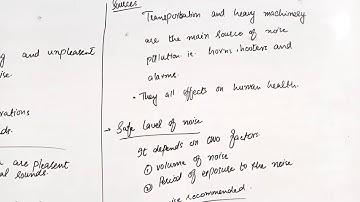 ng and unpleasent
ise.
rations
ds.
are pleasent
al sounds.
Sources
Transportation and heavy machinery
are the main source of noise
pollution ie. horns, hooters and
alarms.
• They all effects on human health.
→ Safe level of noise
It depends on two factors.
① volume of noise
② Period of exposure to the noise
ise recommended.